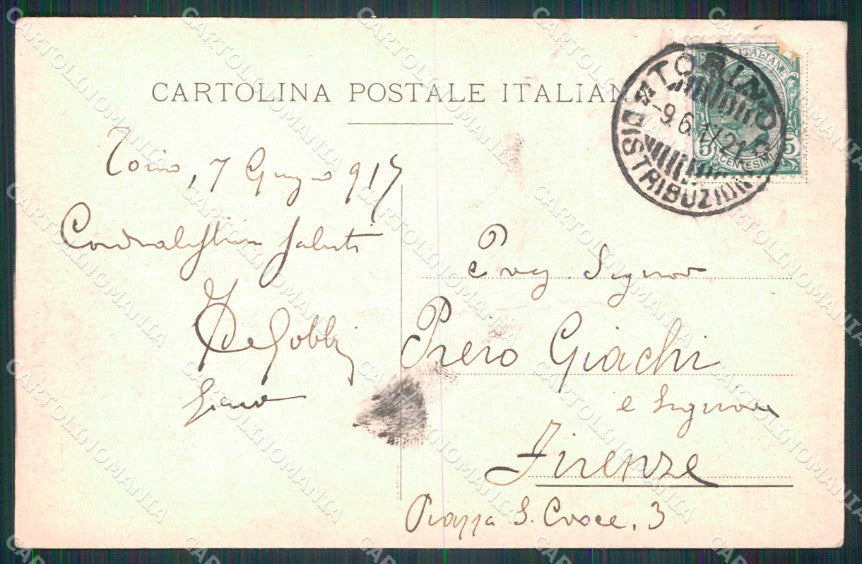 CARTOLINA POSTALE ITALIAN
TORINO
-9.6.17.21
DISTRIBUZION
5 CENTESIMI 5
Torino, 7 Giugno 917
Cordialissimi saluti
De Gobbi
Preg. Signor
Piero Giachi
e Signora
Firenze
Piazza S. Croce, 3
CARTOLINOMANIA